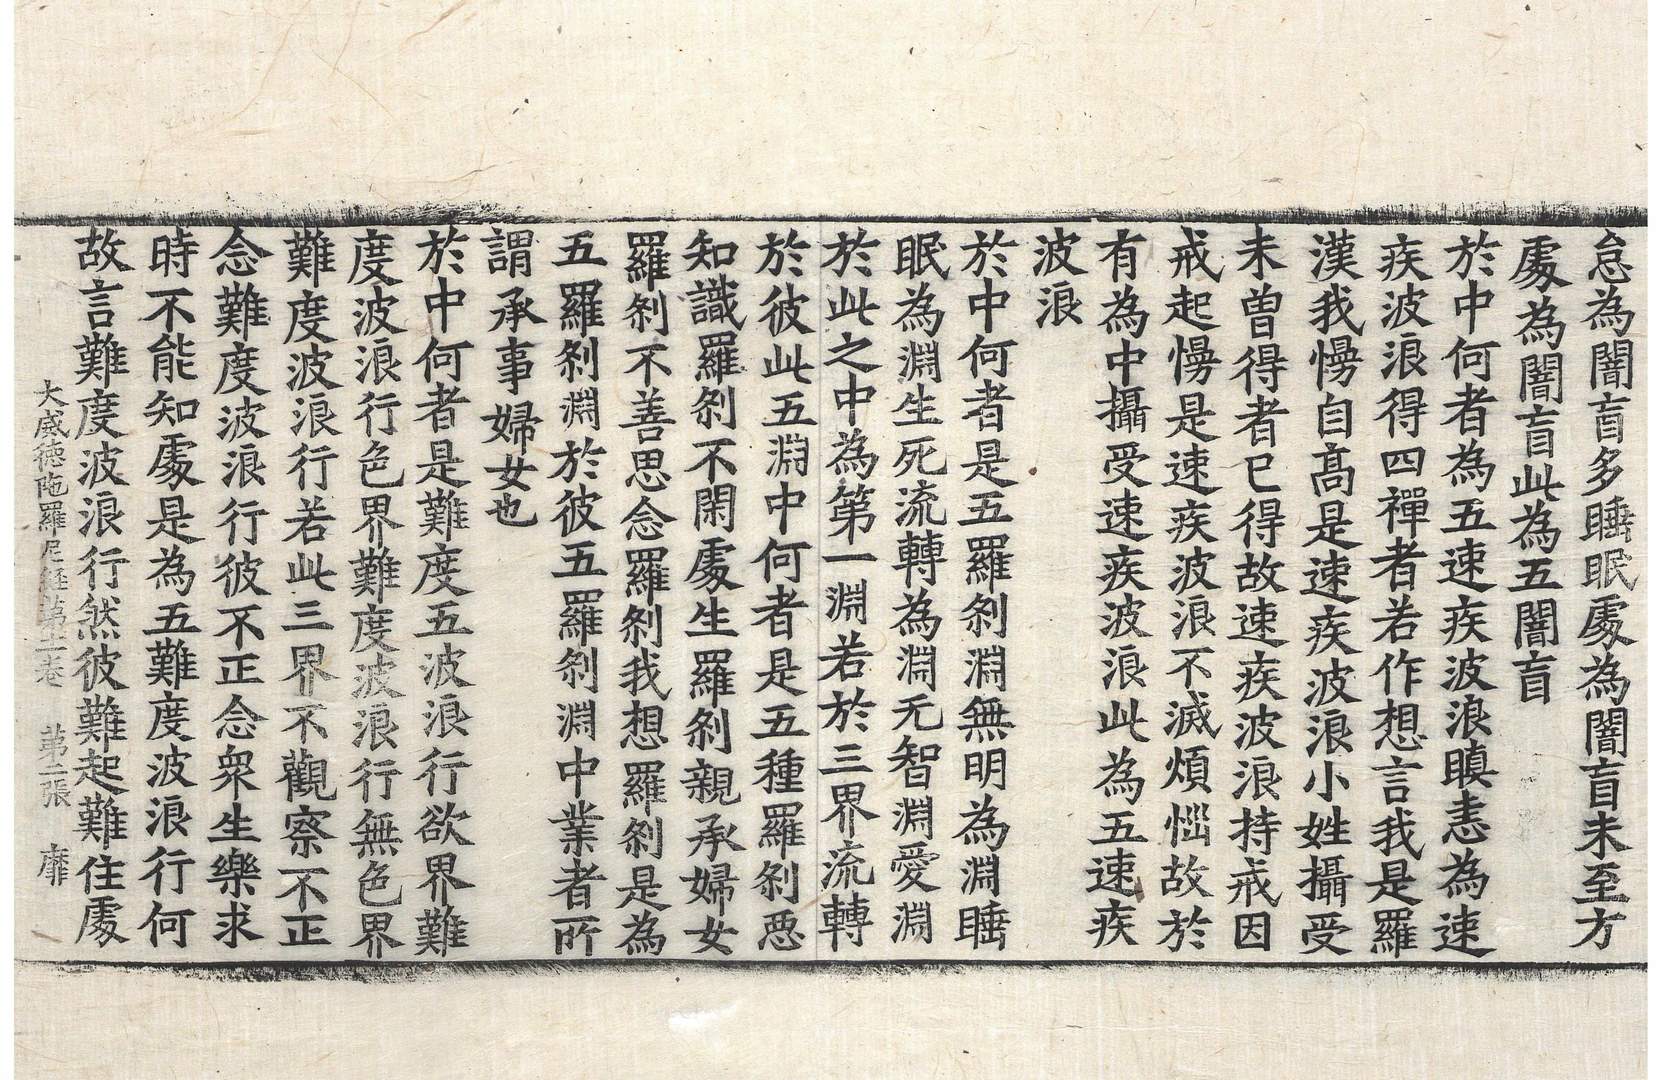 怠為闇盲多睡眠處為闇盲未至方
處為闇盲此為五闇盲
於中何者為五速疾波浪瞋恚為速
疾波浪得四禪者若作想言我是羅
漢我慢自高是速疾波浪小姓攝受
未曽得者已得故速疾波浪持戒因
戒起慢是速疾波浪不滅煩惱故於
有為中攝受速疾波浪此為五速疾
波浪
於中何者是五羅剎淵無明為淵睡
眠為淵生死流轉為淵无智淵愛淵
於此之中為第一淵若於三界流轉
於彼此五淵中何者是五種羅剎惡
知識羅剎不閑處生羅剎親承婦女
羅剎不善思念羅剎我想羅剎是為
五羅剎淵於彼五羅剎淵中業者所
謂承事婦女也
於中何者是難度五波浪行欲界難
度波浪行色界難度波浪行無色界
難度波浪行若此三界不觀察不正
念難度波浪行彼不正念衆生樂求
時不能知處是為五難度波浪行何
故言難度波浪行然彼難起難住處
大威德陁羅尼経第十二卷 第二張 靡